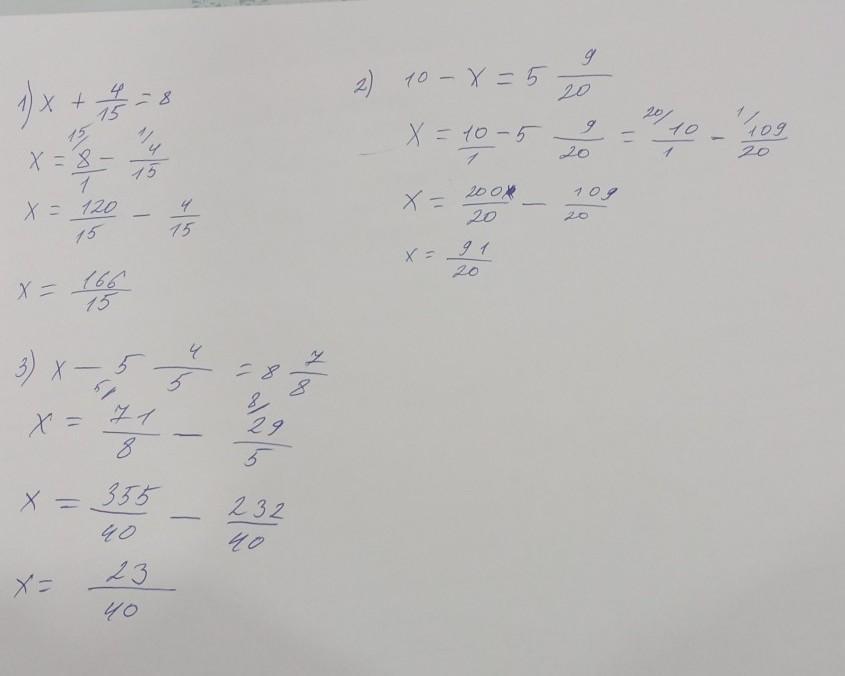 1) x + 4/15 = 8
x = 15/ 8/1 - 1/ 4/15
x = 120/15 - 4/15
x = 166/15
2) 10 - x = 5 9/20
x = 10/1 - 5 9/20 = 20/ 10/1 - 1/ 109/20
x = 200/20 - 109/20
x = 91/20
3) x - 5 4/5 = 8 7/8
x = 5/ 71/8 - 8/ 29/5
x = 355/40 - 232/40
x = 23/40